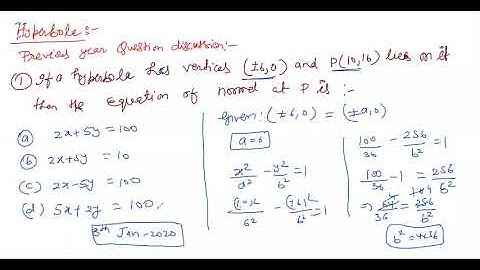 Hyperbola:-
Previous year Question discussion:-
① If a hyperbola has vertices (±6,0) and P(10,16) lies on it
then the equation of normal at P is :-
(a) 2x+5y=100
(b) 2x+5y=10
(c) 2x-5y=100
(d) 5x+2y=100.
8th Jan-2020
Given: (±6,0) = (±a,0)
a=6
x²/a² - y²/b² = 1
(10)²/6² - (16)²/b² = 1
100/36 - 256/b² = 1
100/36 - 1 = 256/b²
⇒ 64/36 = 256/b²
b² = 4×36